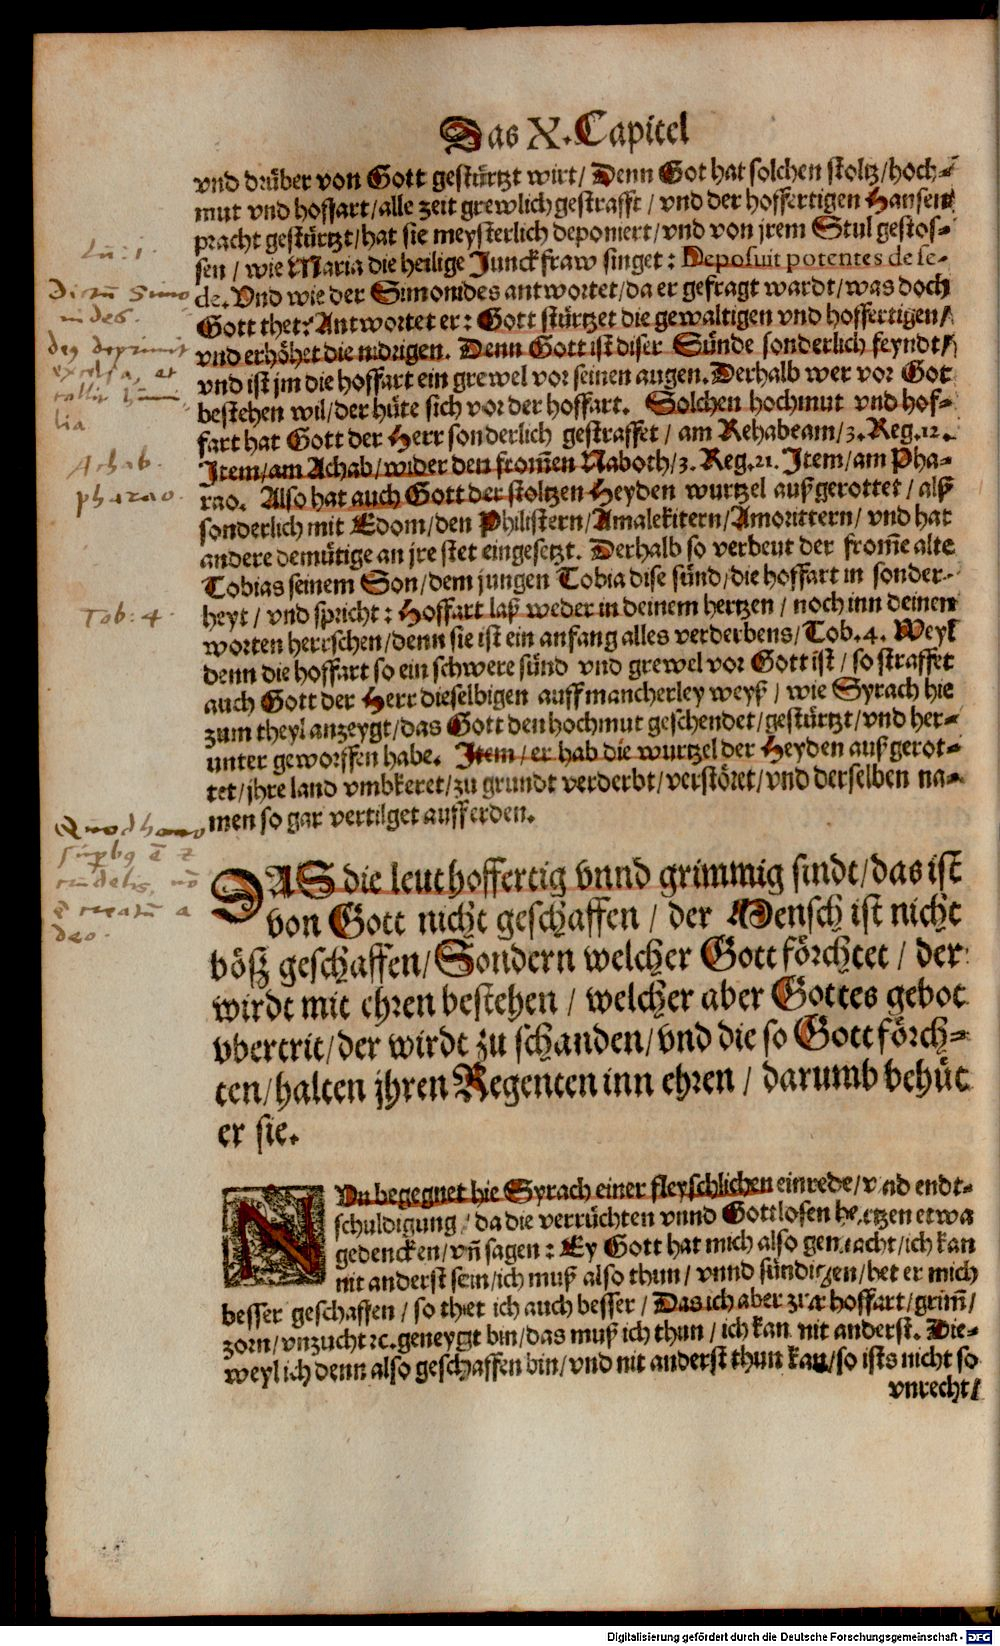 Das X. Capitel
vnd drüber von Gott gestürtzt wirt/ Denn Got hat solchen stoltz/hoch-
mut vnd hoffart/alle zeit grewlich gestrafft / vnd der hoffertigen Hansen
pracht gestürtzt/hat sie meysterlich deponiert/vnd von jrem Stul gestos-
sen / wie Maria die heilige Junckfraw singet : Deposuit potentes de se-
de. Vnd wie der Simonides antwortet/da er gefragt wardt/was doch
Gott thet? Antwortet er : Gott stürtzet die gewaltigen vnd hoffertigen/
vnd erhöhet die nidrigen. Denn Gott ist diser Sünde sonderlich feyndt/
vnd ist jm die hoffart ein grewel vor seinen augen. Derhalb wer vor Got
bestehen wil/der hüte sich vor der hoffart. Solchen hochmut vnd hof-
fart hat Gott der Herr sonderlich gestraffet / am Rehabeam/3. Reg.12.
Item/am Achab/wider den from̃en Naboth/3. Reg.21. Item/am Pha-
rao. Also hat auch Gott der stoltzen Heyden wurtzel außgerottet / alß
sonderlich mit Edom/den Philistern/Amalekitern/Amorittern/ vnd hat
andere demütige an jre stet eingesetzt. Derhalb so verbeut der from̃e alte
Tobias seinem Son/dem jungen Tobia dise sünd/die hoffart in sonder-
heyt / vnd spricht : Hoffart laß weder in deinem hertzen / noch inn deinen
worten herrschen/denn sie ist ein anfang alles verderbens/Tob.4. Weyl
denn die hoffart so ein schwere sünd vnd grewel vor Gott ist / so straffet
auch Gott der Herr dieselbigen auff mancherley weyß / wie Syrach hie
zum theyl anzeygt/das Gott den hochmut geschendet/gestürtzt/vnd her-
unter geworffen habe. Item / er hab die wurtzel der Heyden außgerot-
tet/jhre land vmbkeret/zu grundt verderbt/verstöret/vnd derselben na-
men so gar vertilget auff erden.
DAS die leut hoffertig vnnd grimmig sindt/das ist
von Gott nicht geschaffen / der Mensch ist nicht
böß geschaffen/Sondern welcher Gott förchtet / der
wirdt mit ehren bestehen / welcher aber Gottes gebot
vbertrit/der wirdt zu schanden/vnd die so Gott förch-
ten/halten jhren Regenten inn ehren / darumb behüt
er sie.
NVn begegnet hie Syrach einer fleyschlichen einrede/vnd endt-
schuldigung / da die verrüchten vnnd Gottlosen hertzen etwa
gedencken/vñ sagen : Ey Gott hat mich also gemacht/ich kan
nit anderst sein/ich muß also thun / vnnd sündigen/het er mich
besser geschaffen / so thet ich auch besser / Das ich aber zur hoffart/grim̃/
zorn/vnzucht ꝛc. geneygt bin/das muß ich thun / ich kan nit anderst. Die-
weyl ich denn also geschaffen bin/vnd nit anderst thun kan/so ists nicht so
vnrecht/
Lu: 1.
Dictũ Simo
nides.
deprimit
excelsa, et
lia
Achab.
pharao.
Tob: 4.
Quod homo
deo.
Digitalisierung gefördert durch die Deutsche Forschungsgemeinschaft - DFG